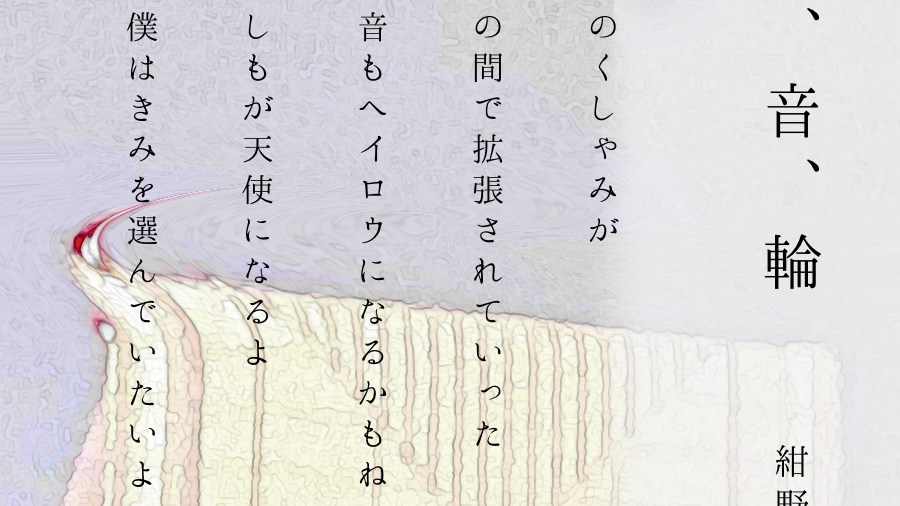 、音、輪
紺野
のくしゃみが
の間で拡張されていった
音もヘイロウになるかもね
しもが天使になるよ
僕はきみを選んでいたいよ